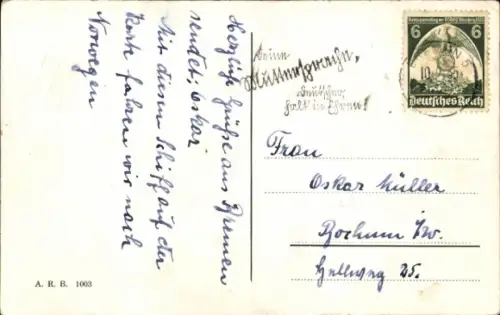 Herzliche Grüße aus Bremen
sendet, Oskar
Mit diesem Schiff auf der
Karte fahren wir nach
Norwegen
A. R. B. 1003
deine
Muttersprache,
Deutscher,
halt in Ehren!
6 6
Deutsches Reich
Frau
Oskar Müller
Bochum i/w.
Hellweg 25.